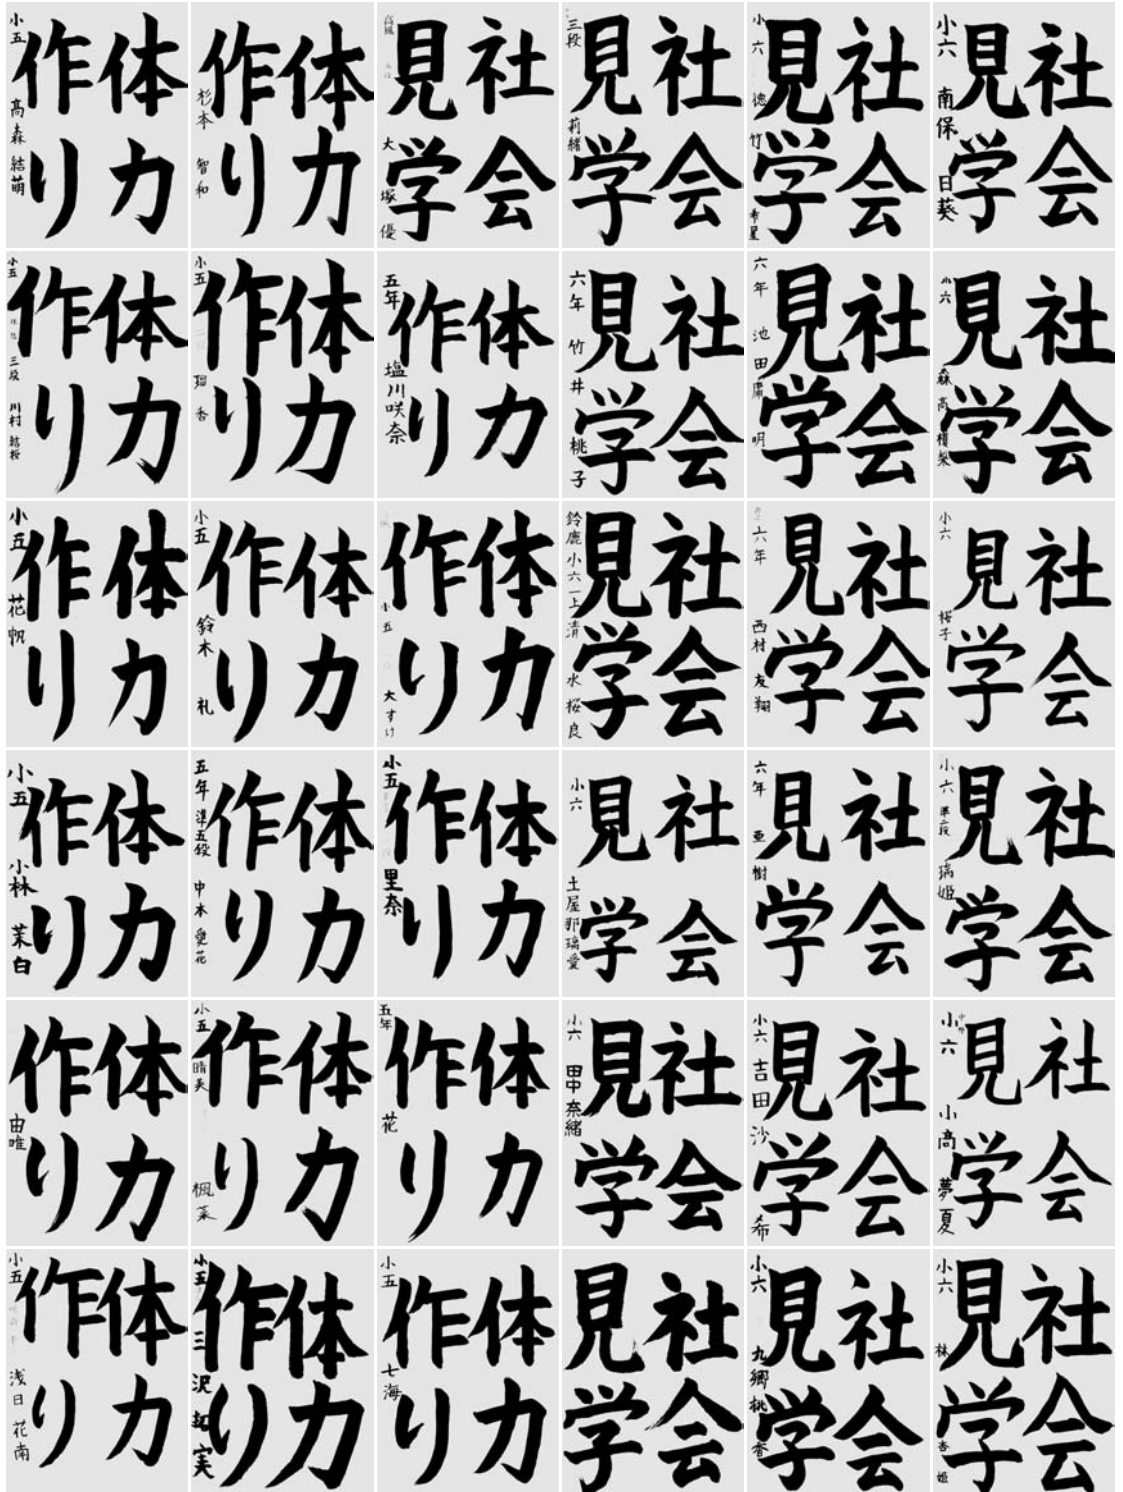 体力
作り
小五 高森結萌
体力
作り
杉本 智和
社会
見学
大塚優
社会
見学
三段 莉緒
社会
見学
小六 徳竹希星
社会
見学
小六 南保日葵
体力
作り
小五 三段 川村結桜
体力
作り
小五 瑠香
体力
作り
五年 塩川咲奈
社会
見学
六年 竹井桃子
社会
見学
六年 池田 明
社会
見学
小六 森高 梨
体力
作り
小五 花帆
体力
作り
小五 鈴木 礼
体力
作り
小五 大すけ
社会
見学
鈴鹿 小六 一上 清水桜良
社会
見学
六年 西村友翔
社会
見学
小六 桜子
体力
作り
小五 小林茉白
体力
作り
五年 準五段 中本愛花
体力
作り
小五 里奈
社会
見学
小六 土屋那璃愛
社会
見学
六年 亜樹
社会
見学
小六 準二段 瑞姫
体力
作り
由唯
体力
作り
小五 晴美 楓菜
体力
作り
五年 花
社会
見学
小六 田中奈緒
社会
見学
小六 吉田沙希
社会
見学
小六 小高夢夏
体力
作り
小五 浅日花南
体力
作り
小五 三沢 実
体力
作り
小五 七海
社会
見学
社会
見学
小六 九郷桃香
社会
見学
小六 林杏姫